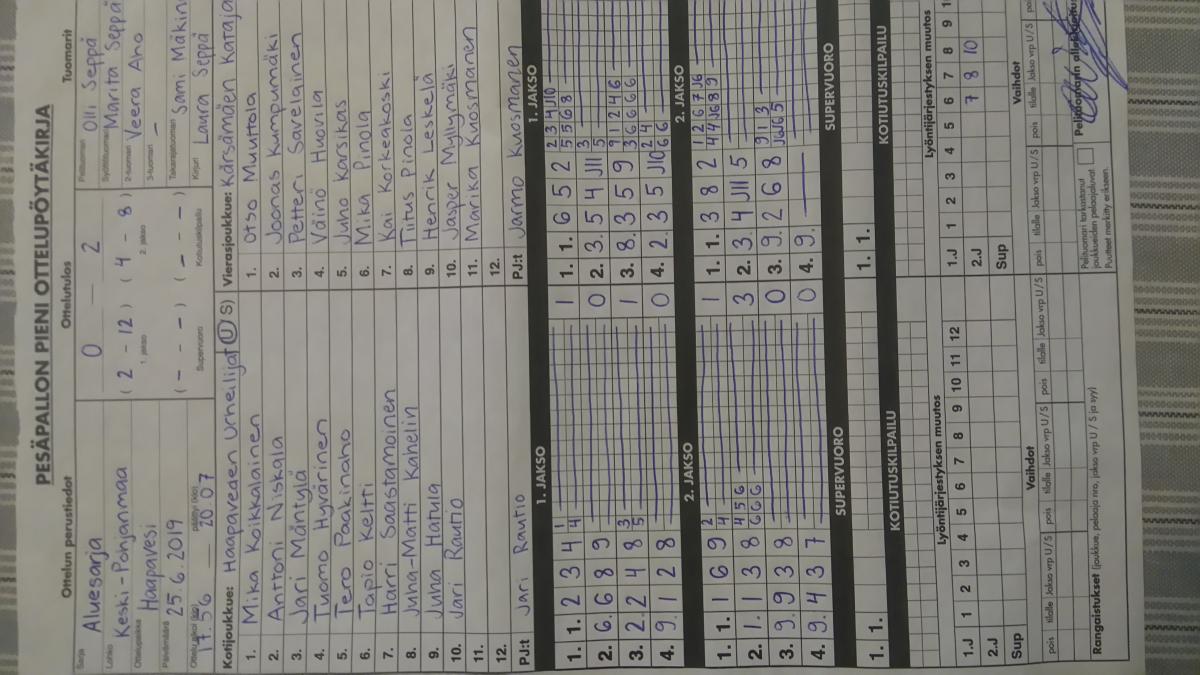 PESÄPALLON PIENI OTTELUPÖYTÄKIRJA
Ottelun perustiedot Ottelutulos Tuomarit
Sarja Aluesarja
Lohko Keski-Pohjanmaa
Ottelupaikka Haapavesi
Päivämäärä 25.6.2019
17.56 — 20 07
0 — 2
( 2 - 12 ) ( 4 - 8 )
1. jakso 2. jakso
( - - - ) ( - - - )
Supervuoro Kotiutuskilpailu
Pelituomari Olli Seppä
Syöttötuomari Marita Seppä
2-tuomari Veera Aho
3-tuomari —
Takarajatuomari Sami Mäkin
Kirjuri Laura Seppä
Kotijoukkue: Haapaveden Urheilijat (U S)
1. Mika Koikkalainen
2. Anttoni Niskala
3. Jari Mäntylä
4. Tuomo Hyvärinen
5. Tero Paakinaho
6. Tapio Keltti
7. Harri Saastamoinen
8. Juha-Matti Kahelin
9. Juha Hatula
10. Jari Rautio
11.
12.
PJ:t Jari Rautio
Vierasjoukkue: Kärsämäen Kataja
1. Otso Muuttola
2. Joonas Kumpumäki
3. Petteri Savelainen
4. Väinö Huovila
5. Juho Karsikas
6. Mika Pinola
7. Kai Korkeakoski
8. Tiitus Pinola
9. Henrik Leskelä
10. Jasper Myllymäki
11. Marika Kuosmanen
12.
PJ:t Jarmo Kuosmanen
1. JAKSO 1. JAKSO
1. 1. 2 3 4 4 1
2. 6. 6 8 9
3. 2. 2 4 8 5 3
4. 9. 1 2 8
1 1. 1. 6 5 2 2 3 4 J10 5 5 6 8
0 2. 3. 5 4 J11 5 3
1 3. 8. 3 5 9 9 1 2 4 6 3 6 6 6 6
0 4. 2. 3 5 J10 6 6 2 4
2. JAKSO 2. JAKSO
1. 1. 1 6 9 4 2
2. 1. 1 3 8 4 5 6 6 6 6
3. 9. 9 3 8
4. 9. 4 3 7
1 1. 1. 3 8 2 1 2 6 7 J6 4 4 J6 8 9
3 2. 3. 4 J11 5
0 3. 9. 2 6 8 9 11 3 J6 J6 5
0 4. 9. —
SUPERVUORO SUPERVUORO
1. 1. 1. 1.
KOTIUTUSKILPAILU KOTIUTUSKILPAILU
Lyöntijärjestyksen muutos Lyöntijärjestyksen muutos
1.J 1 2 3 4 5 6 7 8 9 10 11 12
2.J
Sup
1.J 1 2 3 4 5 6 7 8 9
2.J 7 8 10
Sup
Vaihdot Vaihdot
pois tilalle Jakso vrp U / S pois tilalle Jakso vrp U / S pois tilalle Jakso vrp U / S
pois tilalle Jakso vrp U / S pois tilalle Jakso vrp U / S
Rangaistukset (joukkue, pelaaja nro, jakso vrp U / S ja syy)
Pelituomari tarkastanut
joukkueiden pelaajaluvat.
Puutteet merkitty erikseen.
Pelituomarin allekirjoitus